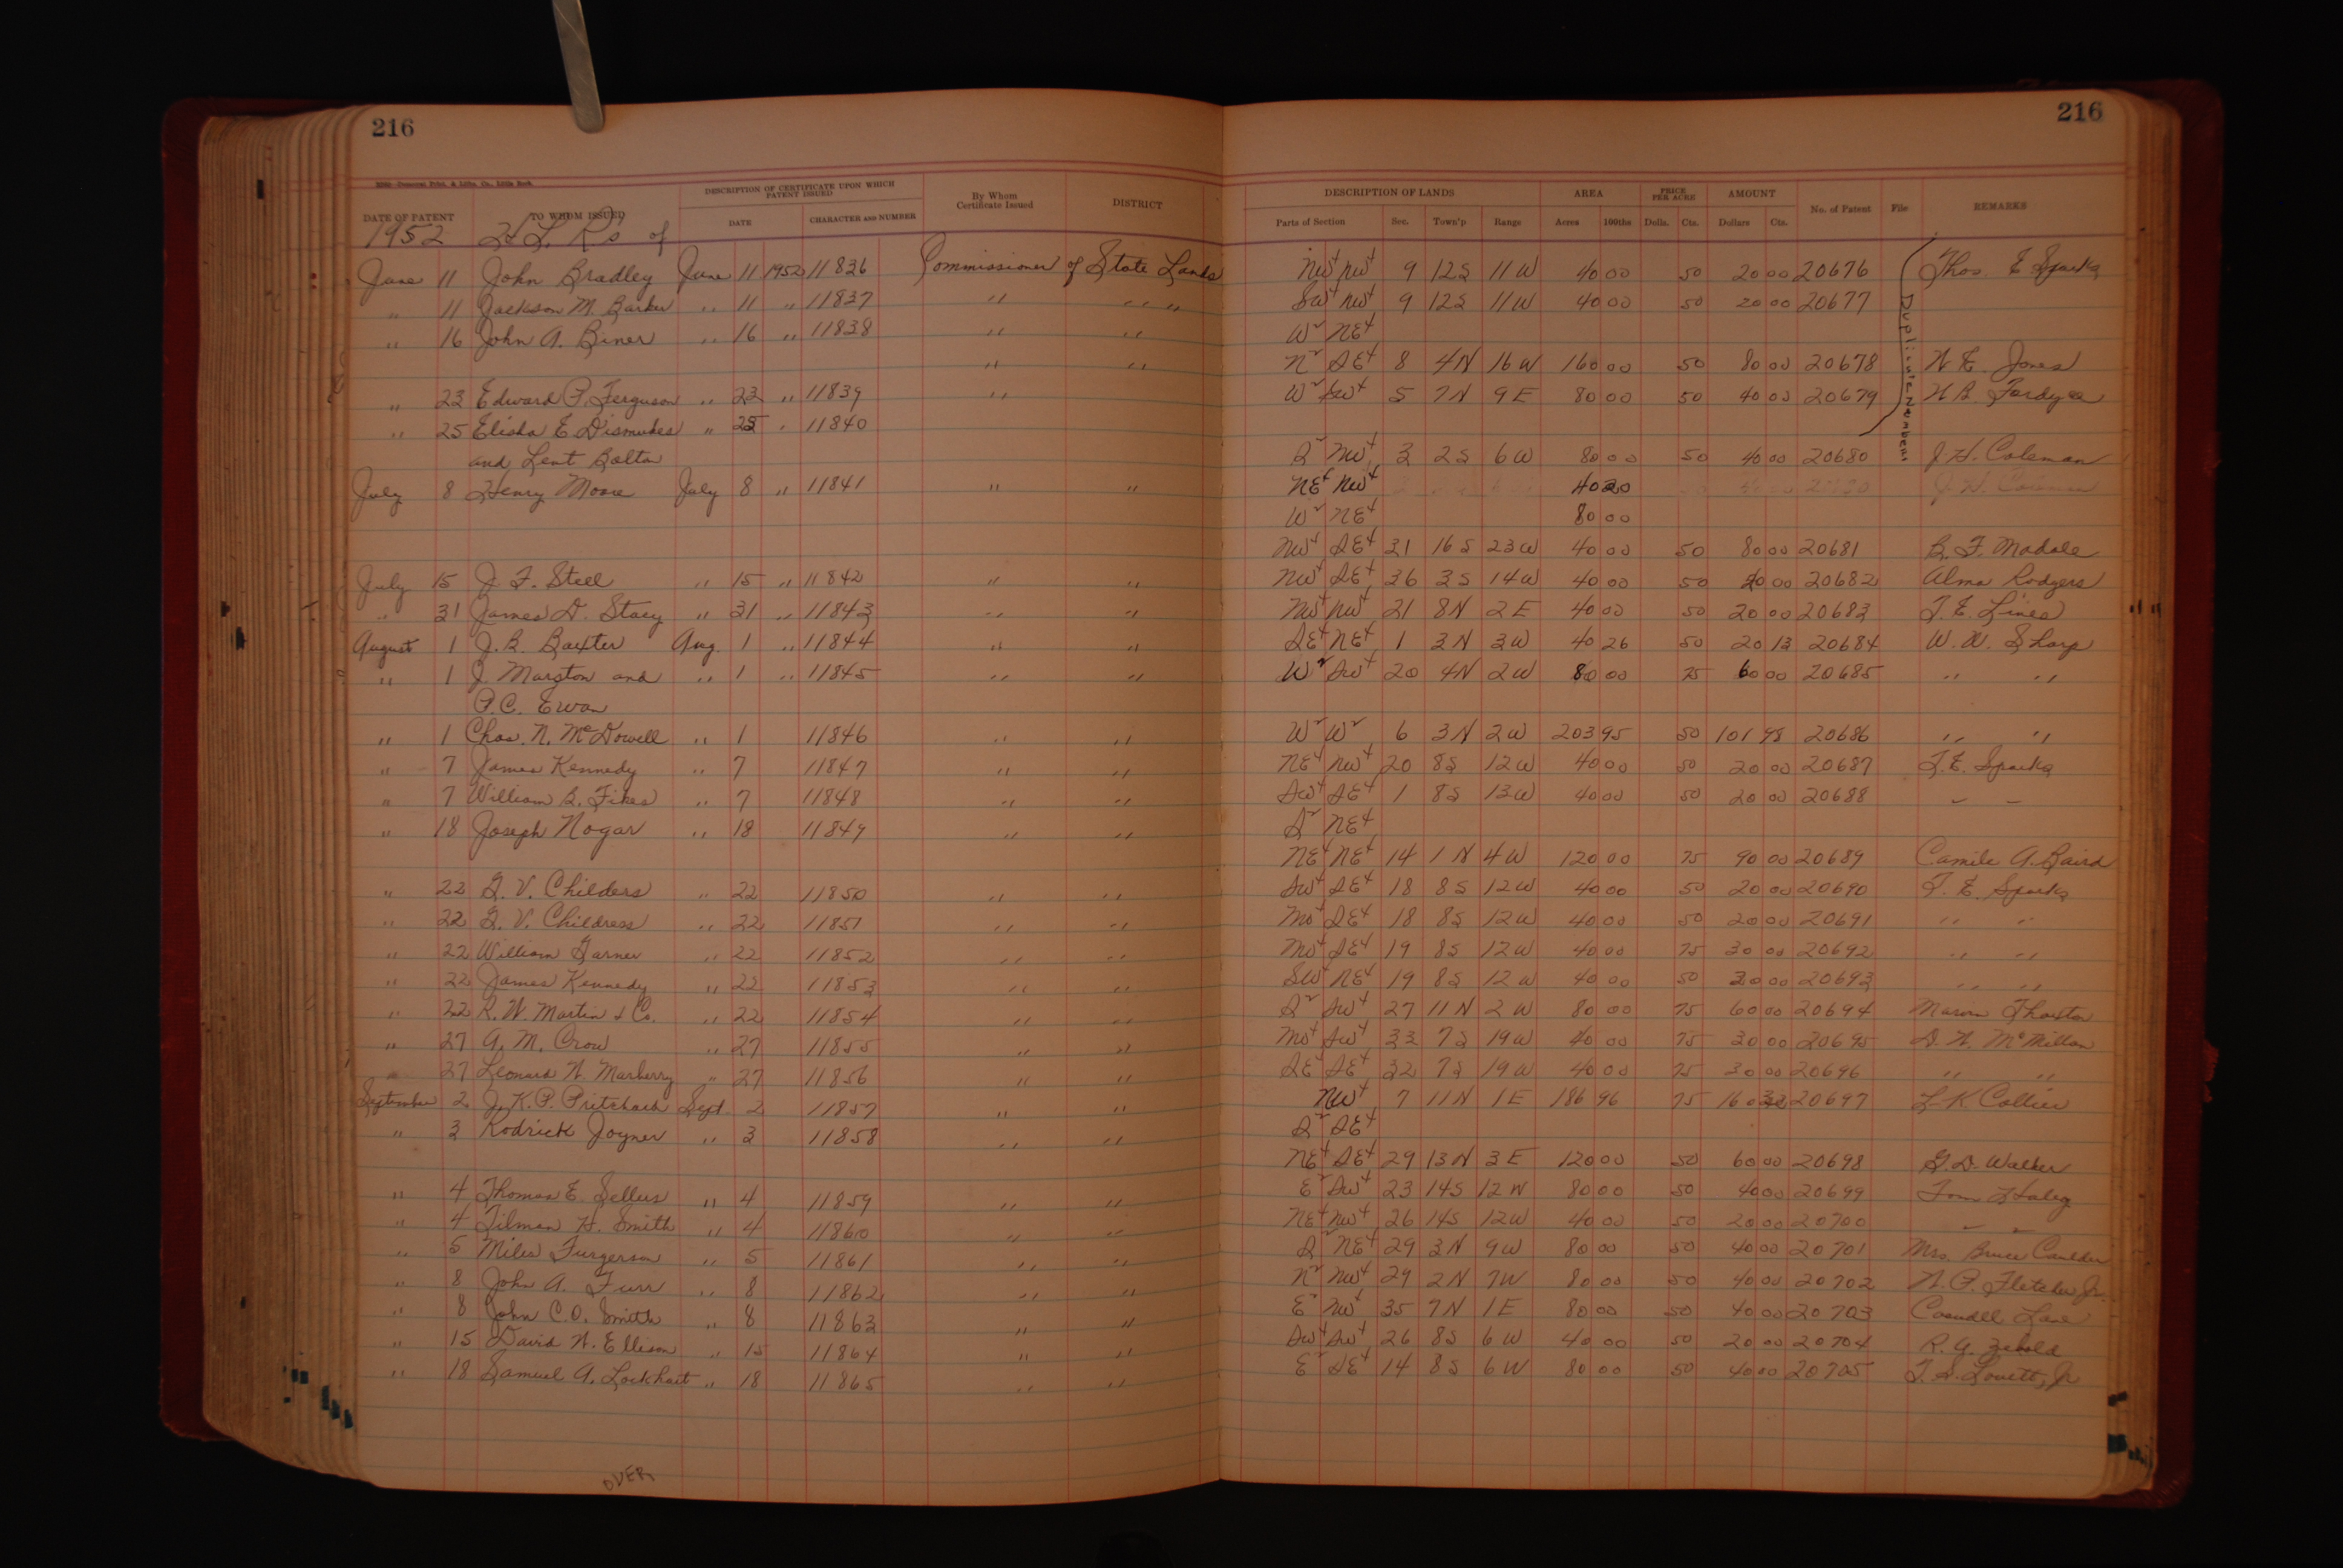 216
216
DESCRIPTION OF CERTIFICATE UPON WHICH PATENT ISSUED
By Whom Certificate Issued
DISTRICT
DESCRIPTION OF LANDS
AREA
PRICE PER ACRE
AMOUNT
No. of Patent
File
REMARKS
DATE OF PATENT
TO WHOM ISSUED
DATE
CHARACTER AND NUMBER
Parts of Section
Sec.
Town'p
Range
Acres
100ths
Dolls.
Cts.
Dollars
Cts.
1952 of
Duplicate Numbers
June 11 John Bradley June 11 1952 11836 Commissioner of State Lands NW4 NW4 9 12S 11W 40 00 50 20 00 20676 Thos. E. Sparks
" 11 Jackson M. Barker " 11 " 11837 " " " SW4 NW4 9 12S 11W 40 00 50 20 00 20677
" 16 John A. Biner " 16 " 11838 " " W2 NE4
" " N2 SE4 8 4N 16W 160 00 50 80 00 20678 Jones
" 23 Edward P. Ferguson " 23 " 11839 " W2 SW4 5 7N 9E 80 00 50 40 00 20679
" 25 Elisha E. Dismukes " 25 " 11840
and Lent Bolton S2 NW4 3 2S 6W 80 00 50 40 00 20680 J. H. Coleman
July 8 Henry Moore July 8 " 11841 " " NE4 NW4 40 20
W2 NE4 80 00
NW4 SE4 31 16S 23W 40 00 50 80 00 20681 B. F. Modole
July 15 J. F. Steel " 15 " 11842 " " NW4 SE4 36 3S 14W 40 00 50 20 00 20682 Alma Rodgers
" 31 James D. Stacy " 31 " 11843 " " NW4 NW4 21 8N 2E 40 00 50 20 00 20683 T. E. Lines
August 1 J. B. Baxter Aug. 1 " 11844 " " SE4 NE4 1 3N 3W 40 26 50 20 13 20684 W. W. Sharp
" 1 J. Marston and " 1 " 11845 " " W2 SW4 20 4N 2W 80 00 75 60 00 20685 " "
P.C. Ewan
" 1 Chas. N. McDowell " 1 11846 " " W2 W2 6 3N 2W 203 95 50 101 98 20686 " "
" 7 James Kennedy " 7 11847 " " NE4 NW4 20 8S 12W 40 00 50 20 00 20687 T. E. Sparks
" 7 William B. Fikes " 7 11848 " " SW4 SE4 1 8S 13W 40 00 50 20 00 20688 " "
" 18 Joseph Nogar " 18 11849 " " S2 NE4
NE4 NE4 14 1N 4W 120 00 75 90 00 20689 Camile A. Baird
" 22 G. V. Childers " 22 11850 " " SW4 SE4 18 8S 12W 40 00 50 20 00 20690 T. E. Sparks
" 22 G. V. Childress " 22 11851 " " NW4 SE4 18 8S 12W 40 00 50 20 00 20691 " "
" 22 William Garner " 22 11852 " " NW4 SE4 19 8S 12W 40 00 75 30 00 20692 " "
" 22 James Kennedy " 22 11853 " " SW4 NE4 19 8S 12W 40 00 50 20 00 20693 " "
" 22 R. W. Martin & Co. " 22 11854 " " S2 SW4 27 11N 2W 80 00 75 60 00 20694 Thaxton
" 27 A. M. Crow " 27 11855 " " NW4 SW4 33 7S 19W 40 00 75 30 00 20695 McMillan
" 27 Leonard N. Marberry " 27 11856 " " SE4 SE4 32 7S 19W 40 00 75 30 00 20696 " "
September 2 J. K. P. Pritchard Sept. 2 11857 " " NW4 7 11N 1E 186 96 75 160 20697 L K Collier
" 3 Rodrick Joyner " 3 11858 " " S2 SE4
NE4 SE4 29 13N 3E 120 00 50 60 00 20698 G. D. Walker
" 4 Thomas E. Sellers " 4 11859 " " E2 SW4 23 14S 12W 80 00 50 40 00 20699 Tom Haley
" 4 Tilman H. Smith " 4 11860 " " NE4 NW4 26 14S 12W 40 00 50 20 00 20700 " "
" 5 Miles Furgerson " 5 11861 " " S2 NE4 29 3N 9W 80 00 50 40 00 20701 Mrs. Bruce Caulder
" 8 John A. Furr " 8 11862 " " N2 NW4 29 2N 7W 80 00 50 40 00 20702 Fletcher Jr.
" 8 John C.O. Smith " 8 11863 " " E2 NW4 35 7N 1E 80 00 50 40 00 20703 Lane
" 15 David N. Ellison " 15 11864 " " SW4 SW4 26 8S 6W 40 00 50 20 00 20704 R. A. Zebold
" 18 Samuel A. Lockhart " 18 11865 " " E2 SE4 14 8S 6W 80 00 50 40 00 20705 Lovett, Jr
OVER